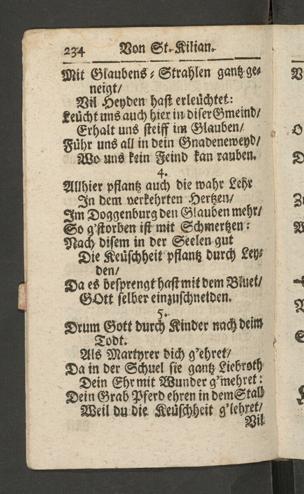 234 Von St. Kilian.
Mit Glaubens-Strahlen gantz ge-
neigt/
Vil Heyden hast erleüchtet:
Leücht uns auch hier in diser Gmeind/
Erhalt uns steiff im Glauben/
Führ uns all in dein Gnadenweyd/
Wo uns kein Feind kan rauben.
4.
Allhier pflantz auch die wahr Lehr
In dem verkehrten Hertzen/
Im Doggenburg den Glauben mehr/
So g'storben ist mit Schmertzen:
Nach disem in der Seelen gut
Die Keüschheit pflantz durch Ley-
den/
Da es besprengt hast mit dem Bluet/
GOtt selber einzuschneiden.
5.
Drum Gott durch Kinder nach deim
Todt.
Als Martyrer dich g'ehret/
Da in der Schuel sie gantz Liebroth
Dein Ehr mit Wunder g'mehret:
Dein Grab Pferd ehren in dem Stall
Weil du die Keüschheit g'lehret/
Vil